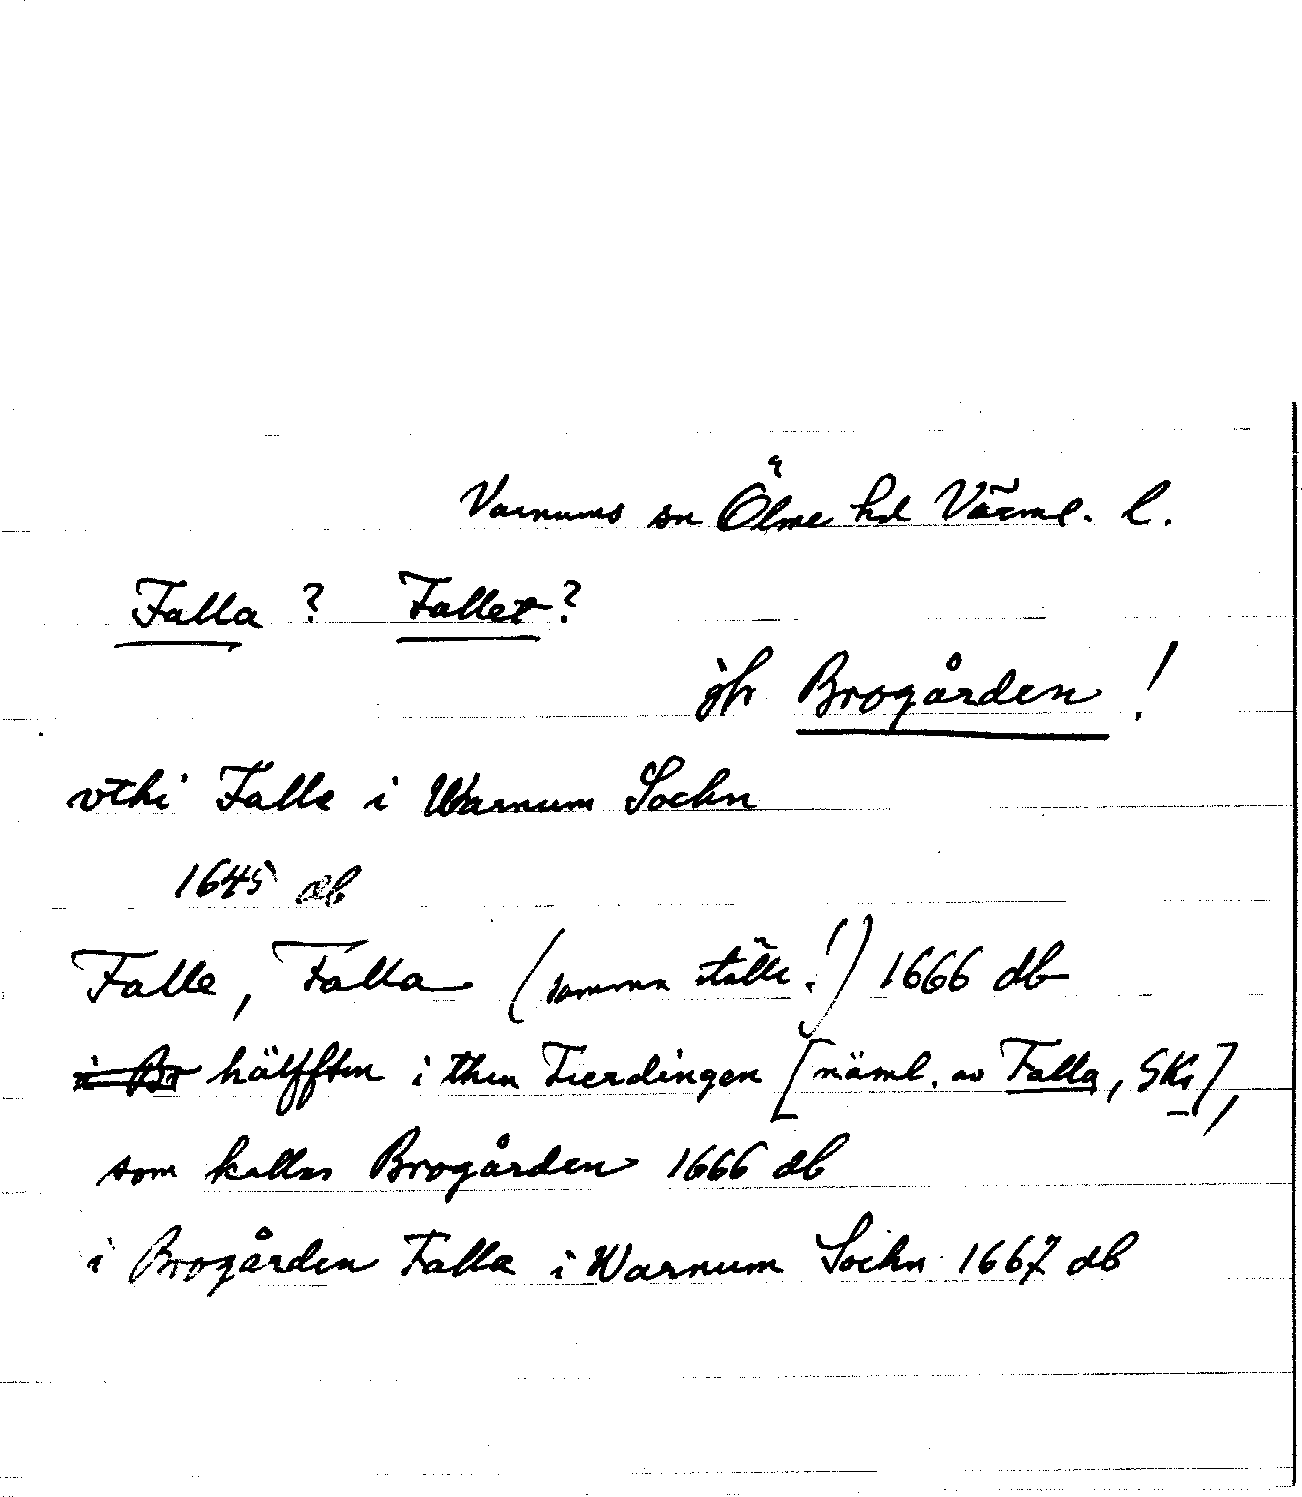 Varnums sn Ölme hd Värml. l.
Falla ? Fallet ?
jfr Brogården !
vthi Falle i Warnum Sochn
1645 db
Falle, Falla (samma ställe!) 1666 db
i Br hälfften i then Fierdingen [näml. av Falla, SKs],
som kallas Brogården 1666 db
i Brogården Falla i Warnum Sochn 1667 db